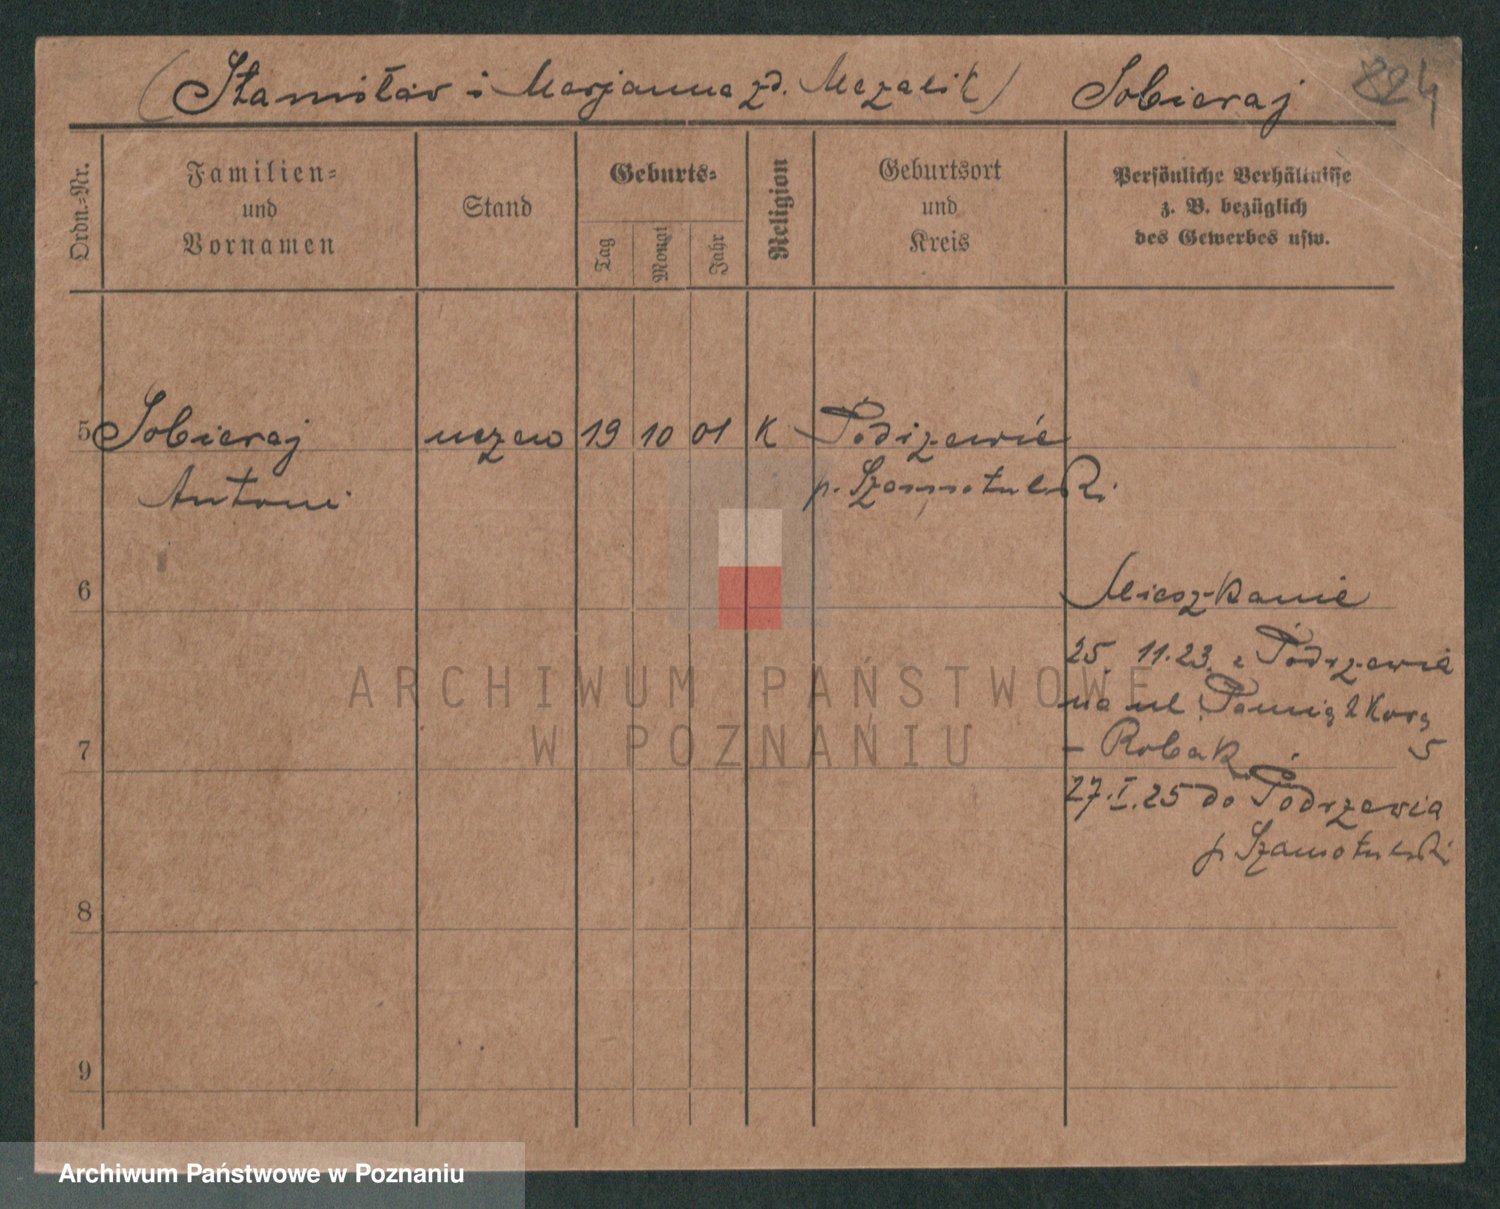 (Stanisław i Marjanna zd. Mezalik) Sobieraj 824
Ordn.-Nr.
Familien-
und
Vornamen
Stand
Geburts-
Tag
Monat
Jahr
Religion
Geburtsort
und
Kreis
Persönliche Verhältnisse
z. B. bezüglich
des Gewerbes usw.
5 Sobieraj uczeń 19 10 01 K Podrzewie
Antoni p. Szamotulski
6 Mieszkanie
25. 11.23 z Podrzewia
na ul.
7 - Robak 5
27.I.25 do Podrzewia
p. Szamotulski
8
9
ARCHIWUM PAŃSTWOWE
W POZNANIU
Archiwum Państwowe w Poznaniu